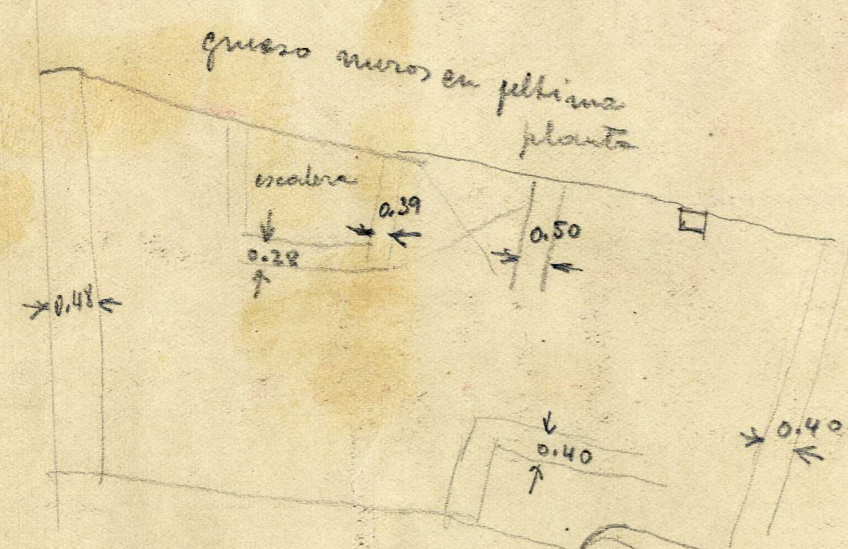 grueso muros en última
planta
escalera
0.39
0.50
0.28
0.48
0.40
0.40